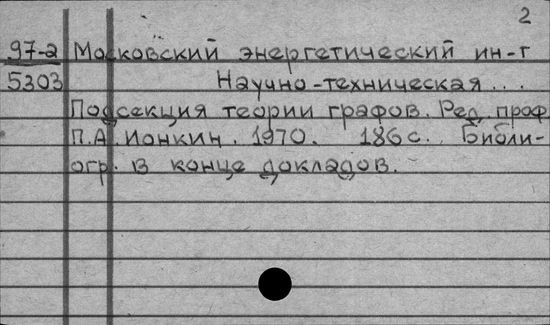 2
97-2 Московский энергетический ин-т
5303 Научно-техническая...
Подсекция теории графов. Ред. проф.
П.А. Ионкин. 1970. 186с. Библи-
огр. в конце докладов.